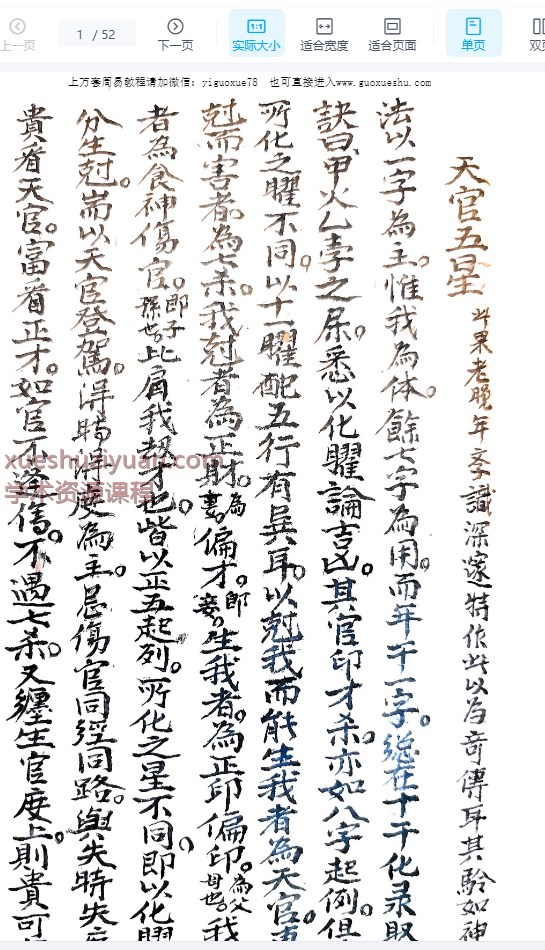 上一页
1 / 52
下一页
1:1
实际大小
适合宽度
适合页面
单页
双页
上万套周易教程请加微信：yiguoxue78 也可直接进入www.guoxueshu.com
天官五星 此果老晚年文字識深邃特作此以为奇傳耳其驗如神
法以一字為主。惟我為体。餘七字為用。而年干一字。總在十干化录取
訣曰甲火乙孛之属。悉以化曜論吉凶。其官印才杀。亦如八字起例。但
所化之曜不同。以十一曜配五行有異耳。以尅我而能生我者為天官。
尅而害者。為七杀。我尅者為正財。為妻。偏才。即妾。生我者。為正印偏印。為父母也。我
者為食神傷官。即子孫也。比肩我刼才也。皆以正五起列。所化之星不同。即以化曜
分生尅。耑以天官登駕。得時得度為主。忌傷官同經同路。與失時失
貴看天官。富看正才。如官不逢傷。不遇七杀。又纏生官度上。則貴可
xueshuziyuan.com
学术资源课程